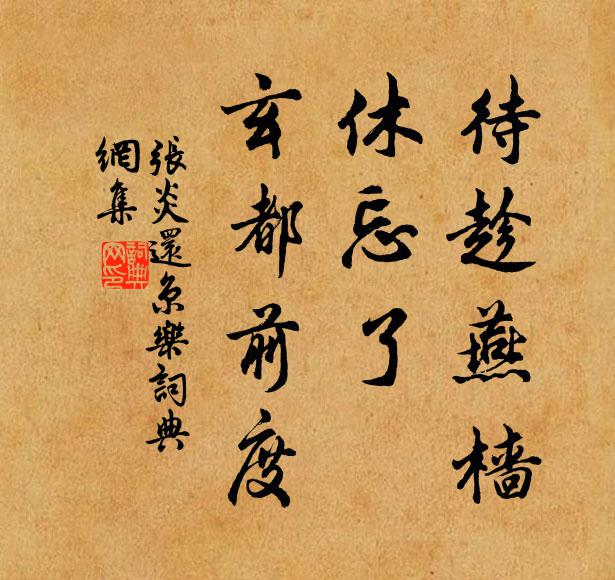 待趁燕樯
休忘了
玄都前度
張炎還京樂詞典
網集
詞典网印